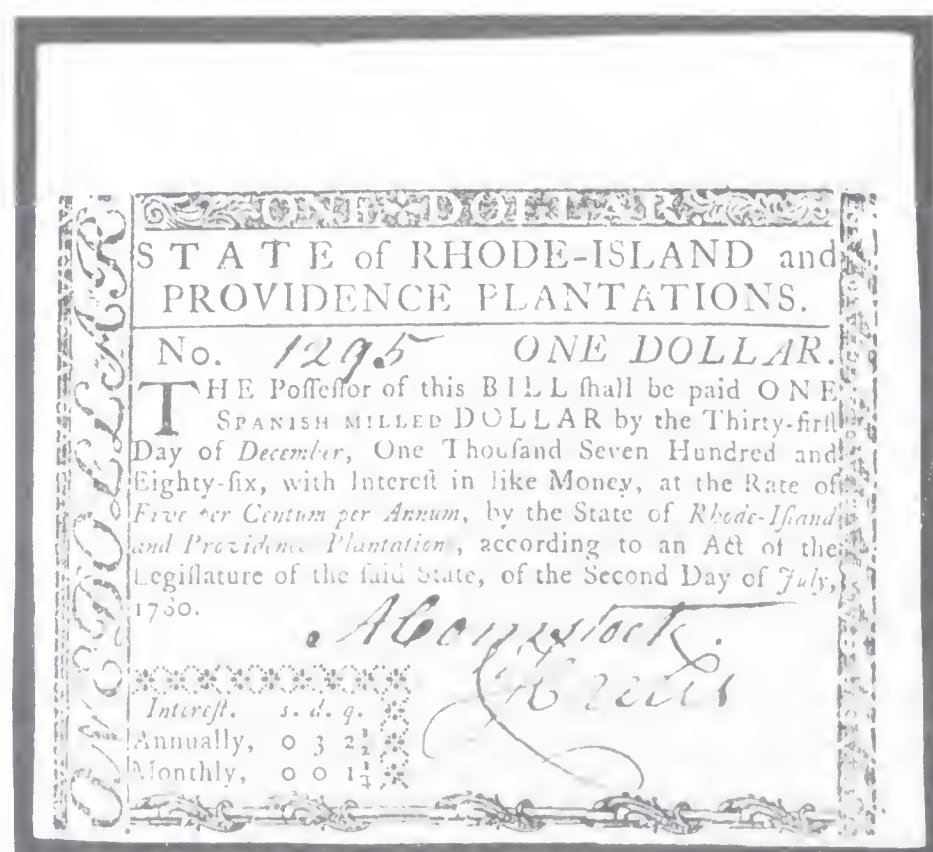 ONE DOLLAR.
ONE DOLLAR
STATE of RHODE-ISLAND and
PROVIDENCE PLANTATIONS.
No. 1295 ONE DOLLAR.
THE Poſſeſſor of this BILL ſhall be paid ONE
SPANISH MILLED DOLLAR by the Thirty-firſt
Day of December, One Thouſand Seven Hundred and
Eighty-ſix, with Intereſt in like Money, at the Rate of
Five per Centum per Annum, by the State of Rhode-Iſland
and Providence Plantation, according to an Act of the
Legiſlature of the ſaid State, of the Second Day of July,
1780.
A Comstock.
Intereſt. s. d. q.
Annually, 0 3 2½
Monthly, 0 0 1¼